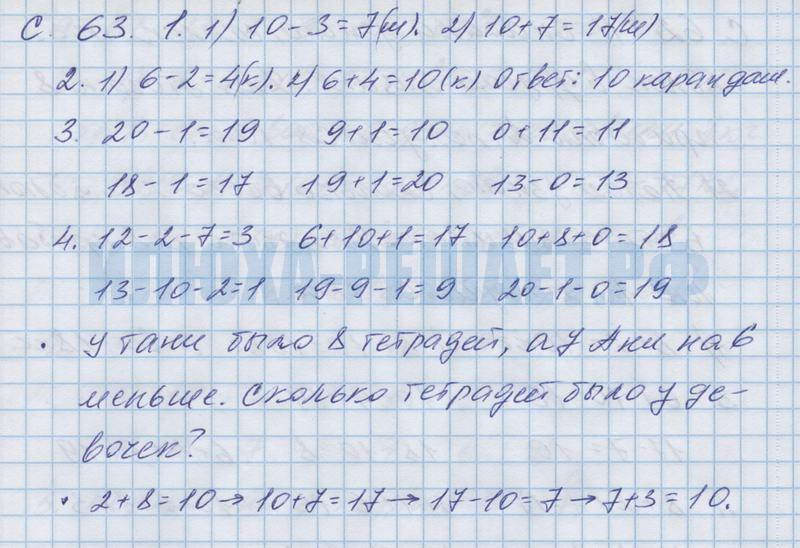 С. 63. 1. 1) 10-3=7(м). 2) 10+7=17(м)
2. 1) 6-2=4(к). 2) 6+4=10(к) Ответ: 10 карандаш.
3. 20-1=19 9+1=10 0+11=11
18-1=17 19+1=20 13-0=13
4. 12-2-7=3 6+10+1=17 10+8+0=18
13-10-2=1 19-9-1=9 20-1-0=19
• У Тани было 8 тетрадей, а у Ани на 6
меньше. Сколько тетрадей было у де-
вочек?
• 2+8=10→10+7=17→17-10=7→7+3=10.